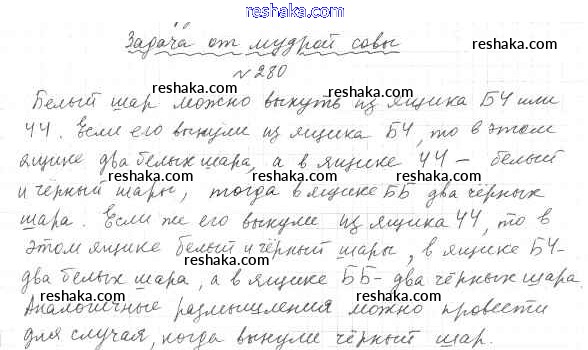 reshaka.com
Задача от мудрой совы
№280
Белый шар можно вынуть из ящика БЧ или
ЧЧ. Если его вынули из ящика БЧ, то в этом
ящике два белых шара, а в ящике ЧЧ – белый
и чёрный шары, тогда в ящике ББ два чёрных
шара. Если же его вынули из ящика ЧЧ, то в
этом ящике белый и чёрный шары, в ящике БЧ-
два белых шара, а в ящике ББ- два чёрных шара.
Аналогичные размышления можно провести
для случая, когда вынули чёрный шар.